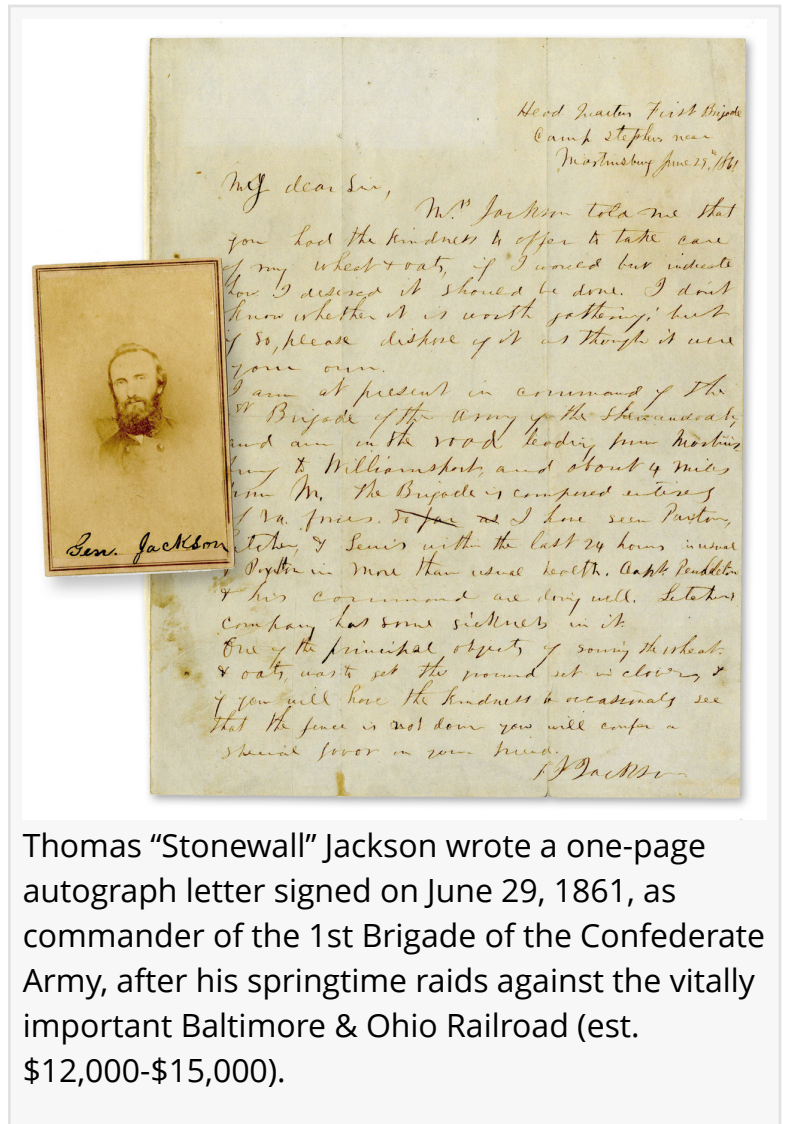 Head Quarters First Brigade
Camp Stephens near
Martinsburg June 29th, 1861
My dear Sir,
Mrs Jackson told me that
you had the kindness to offer to take care
of my wheat & oats, if I would but indicate
how I desired it should be done. I don't
know whether it is worth gathering; but
if so, please dispose of it as though it were
your own.
I am at present in command of the
1st Brigade of the Army of the Shenandoah,
and am in the road leading from Martins
burg to Williamsport, and about 4 miles
from M. The Brigade is composed entirely
of Va. forces. So far as I have seen Paxton,
Letcher, & Lewis within the last 24 hours
& in more than usual health. Capt. Pendleton
& his command are doing well. Letcher's
company has some sickness in it.
One of the principal objects of sowing the wheat
& oats, was to get the ground set in clover, &
if you will have the kindness to occasionally see
that the fence is not down you will confer a
special favor on your friend.
T J Jackson
Gen. Jackson
Thomas “Stonewall” Jackson wrote a one-page
autograph letter signed on June 29, 1861, as
commander of the 1st Brigade of the Confederate
Army, after his springtime raids against the vitally
important Baltimore & Ohio Railroad (est.
$12,000-$15,000).